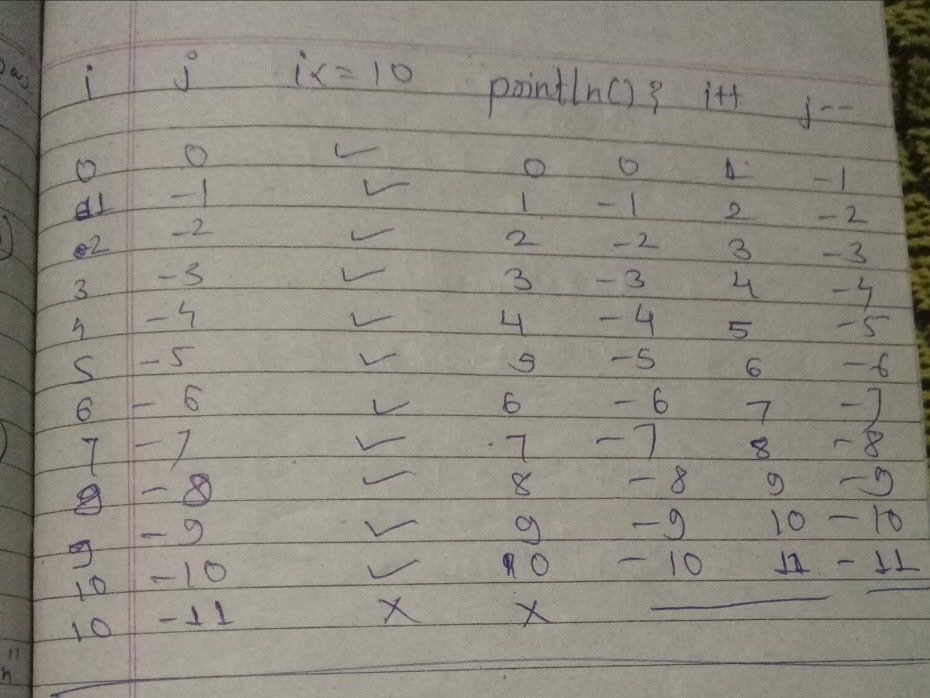 i j i<=10 println(); i++ j--
0 0 ✓ 0 0 1 -1
1 -1 ✓ 1 -1 2 -2
2 -2 ✓ 2 -2 3 -3
3 -3 ✓ 3 -3 4 -4
4 -4 ✓ 4 -4 5 -5
5 -5 ✓ 5 -5 6 -6
6 -6 ✓ 6 -6 7 -7
7 -7 ✓ 7 -7 8 -8
8 -8 ✓ 8 -8 9 -9
9 -9 ✓ 9 -9 10 -10
10 -10 ✓ 10 -10 11 -11
10 -11 × ×